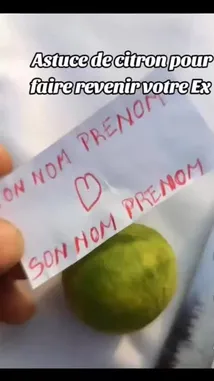 Astuce de citron pour
faire revenir votre Ex
TON NOM PRENOM
SON NOM PRENOM